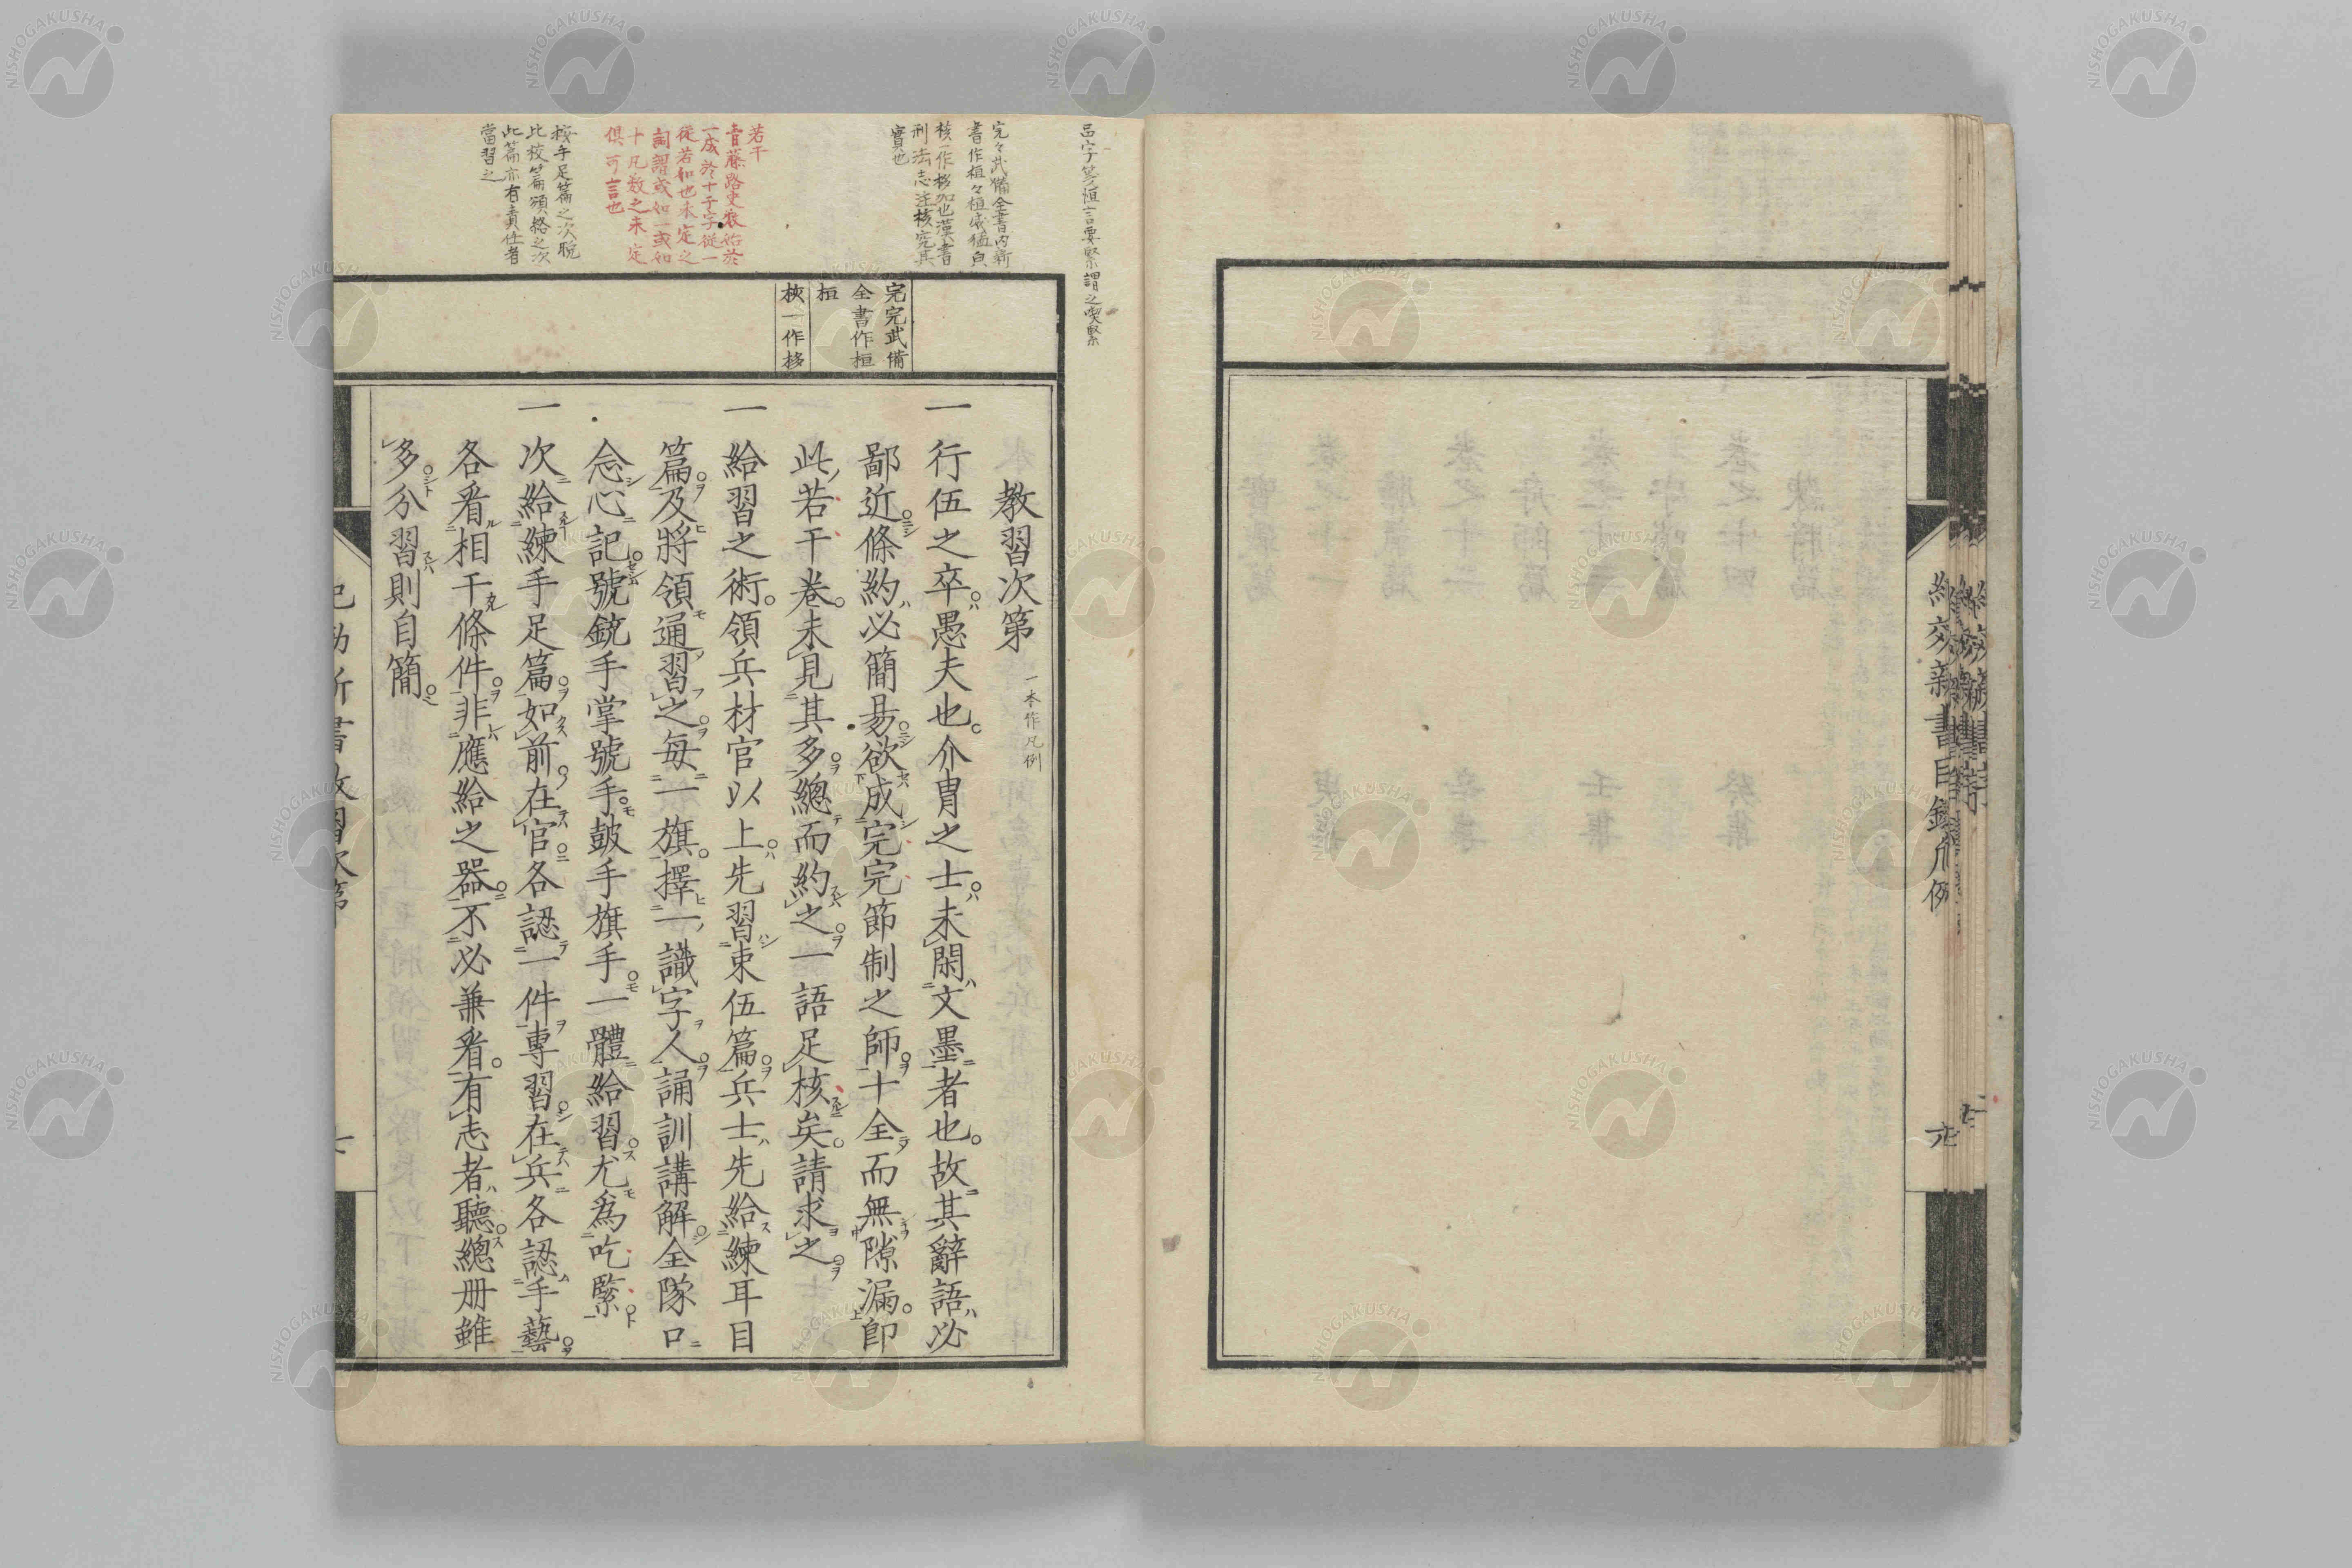 紀效新書目録凡例
呂字箋恒言要緊謂之喫緊
完々武備全書内新
書作桓々桓威猛皃
核一作移如也漢書
刑法志注核究其
實也
若干
一成於十干字從一
從若如也未定之
詞謂或如一或如
十凡数之未定
俱可言也
按手足篇之次脱
比校篇領挌之次
此篇亦有責任者
當習之
完完武備
全書作桓
桓
核一作移
教習次第
一本作凡例
一行伍之卒愚夫也介冑之士未閑文墨者也故其辭語必
鄙近條約必簡易欲成完完節制之師十全而無隙漏卽
此若干巻未見其多總而約之一語足核矣請求之
一給習之術領兵材官以上先習束伍篇兵士先給練耳目
篇及將領通習之每一旗擇一識字人誦訓講解全隊口
念心記號銃手掌號手皷手旗手一體給習尤爲吃緊
一次給練手足篇如前在官各認一件專習在兵各認手藝
各看相干條件非應給之器不必兼看有志者聽總册雖
多分習則自簡